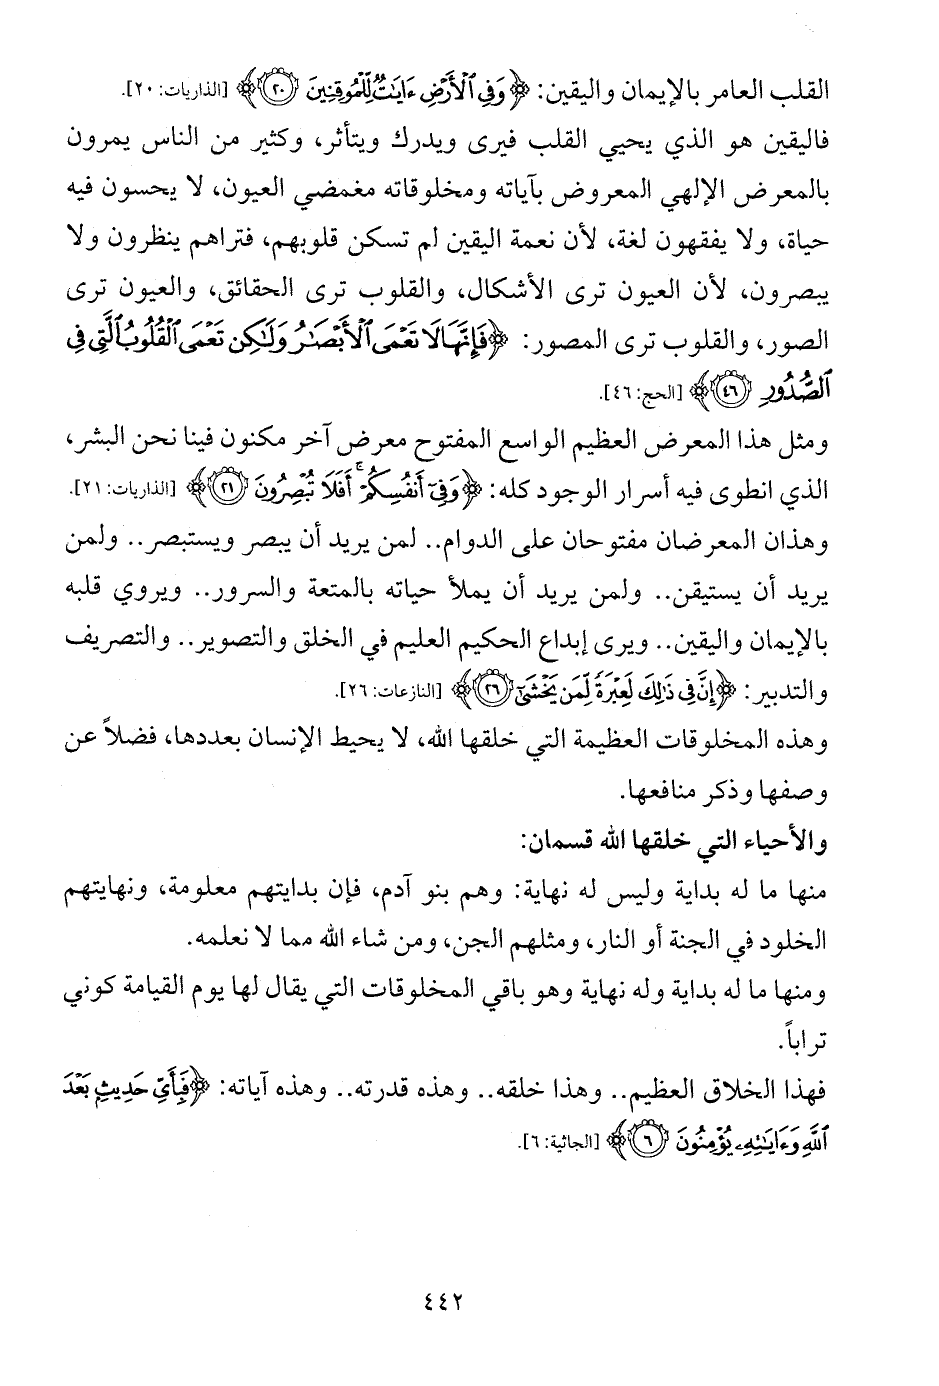 القلب العامر بالإيمان واليقين: ﴿وَفِي ٱلْأَرْضِ ءَايَٰتٌ لِّلْمُوقِنِينَ ۝٢٠﴾ [الذاريات: ٢٠].
فاليقين هو الذي يحيي القلب فيرى ويدرك ويتأثر، وكثير من الناس يمرون
بالمعرض الإلهي المعروض بآياته ومخلوقاته مغمضي العيون، لا يحسون فيه
حياة، ولا يفقهون لغة، لأن نعمة اليقين لم تسكن قلوبهم، فتراهم ينظرون ولا
يبصرون، لأن العيون ترى الأشكال، والقلوب ترى الحقائق، والعيون ترى
الصور، والقلوب ترى المصور: ﴿فَإِنَّهَا لَا تَعْمَى ٱلْأَبْصَٰرُ وَلَٰكِن تَعْمَى ٱلْقُلُوبُ ٱلَّتِي فِي
ٱلصُّدُورِ ۝٤٦﴾ [الحج: ٤٦].
ومثل هذا المعرض العظيم الواسع المفتوح معرض آخر مكنون فينا نحن البشر،
الذي انطوى فيه أسرار الوجود كله: ﴿وَفِيٓ أَنفُسِكُمْ ۚ أَفَلَا تُبْصِرُونَ ۝٢١﴾ [الذاريات: ٢١].
وهذان المعرضان مفتوحان على الدوام.. لمن يريد أن يبصر ويستبصر.. ولمن
يريد أن يستيقن.. ولمن يريد أن يملأ حياته بالمتعة والسرور.. ويروي قلبه
بالإيمان واليقين.. ويرى إبداع الحكيم العليم في الخلق والتصوير.. والتصريف
والتدبير: ﴿إِنَّ فِي ذَٰلِكَ لَعِبْرَةً لِّمَن يَخْشَىٰٓ ۝٢٦﴾ [النازعات: ٢٦].
وهذه المخلوقات العظيمة التي خلقها الله، لا يحيط الإنسان بعددها، فضلاً عن
وصفها وذكر منافعها.
والأحياء التي خلقها الله قسمان:
منها ما له بداية وليس له نهاية: وهم بنو آدم، فإن بدايتهم معلومة، ونهايتهم
الخلود في الجنة أو النار، ومثلهم الجن، ومن شاء الله مما لا نعلمه.
ومنها ما له بداية وله نهاية وهو باقي المخلوقات التي يقال لها يوم القيامة كوني
تراباً.
فهذا الخلاق العظيم.. وهذا خلقه.. وهذه قدرته.. وهذه آياته: ﴿فَبِأَيِّ حَدِيثٍۭ بَعْدَ
ٱللَّهِ وَءَايَٰتِهِۦ يُؤْمِنُونَ ۝٦﴾ [الجاثية: ٦].
٤٤٢